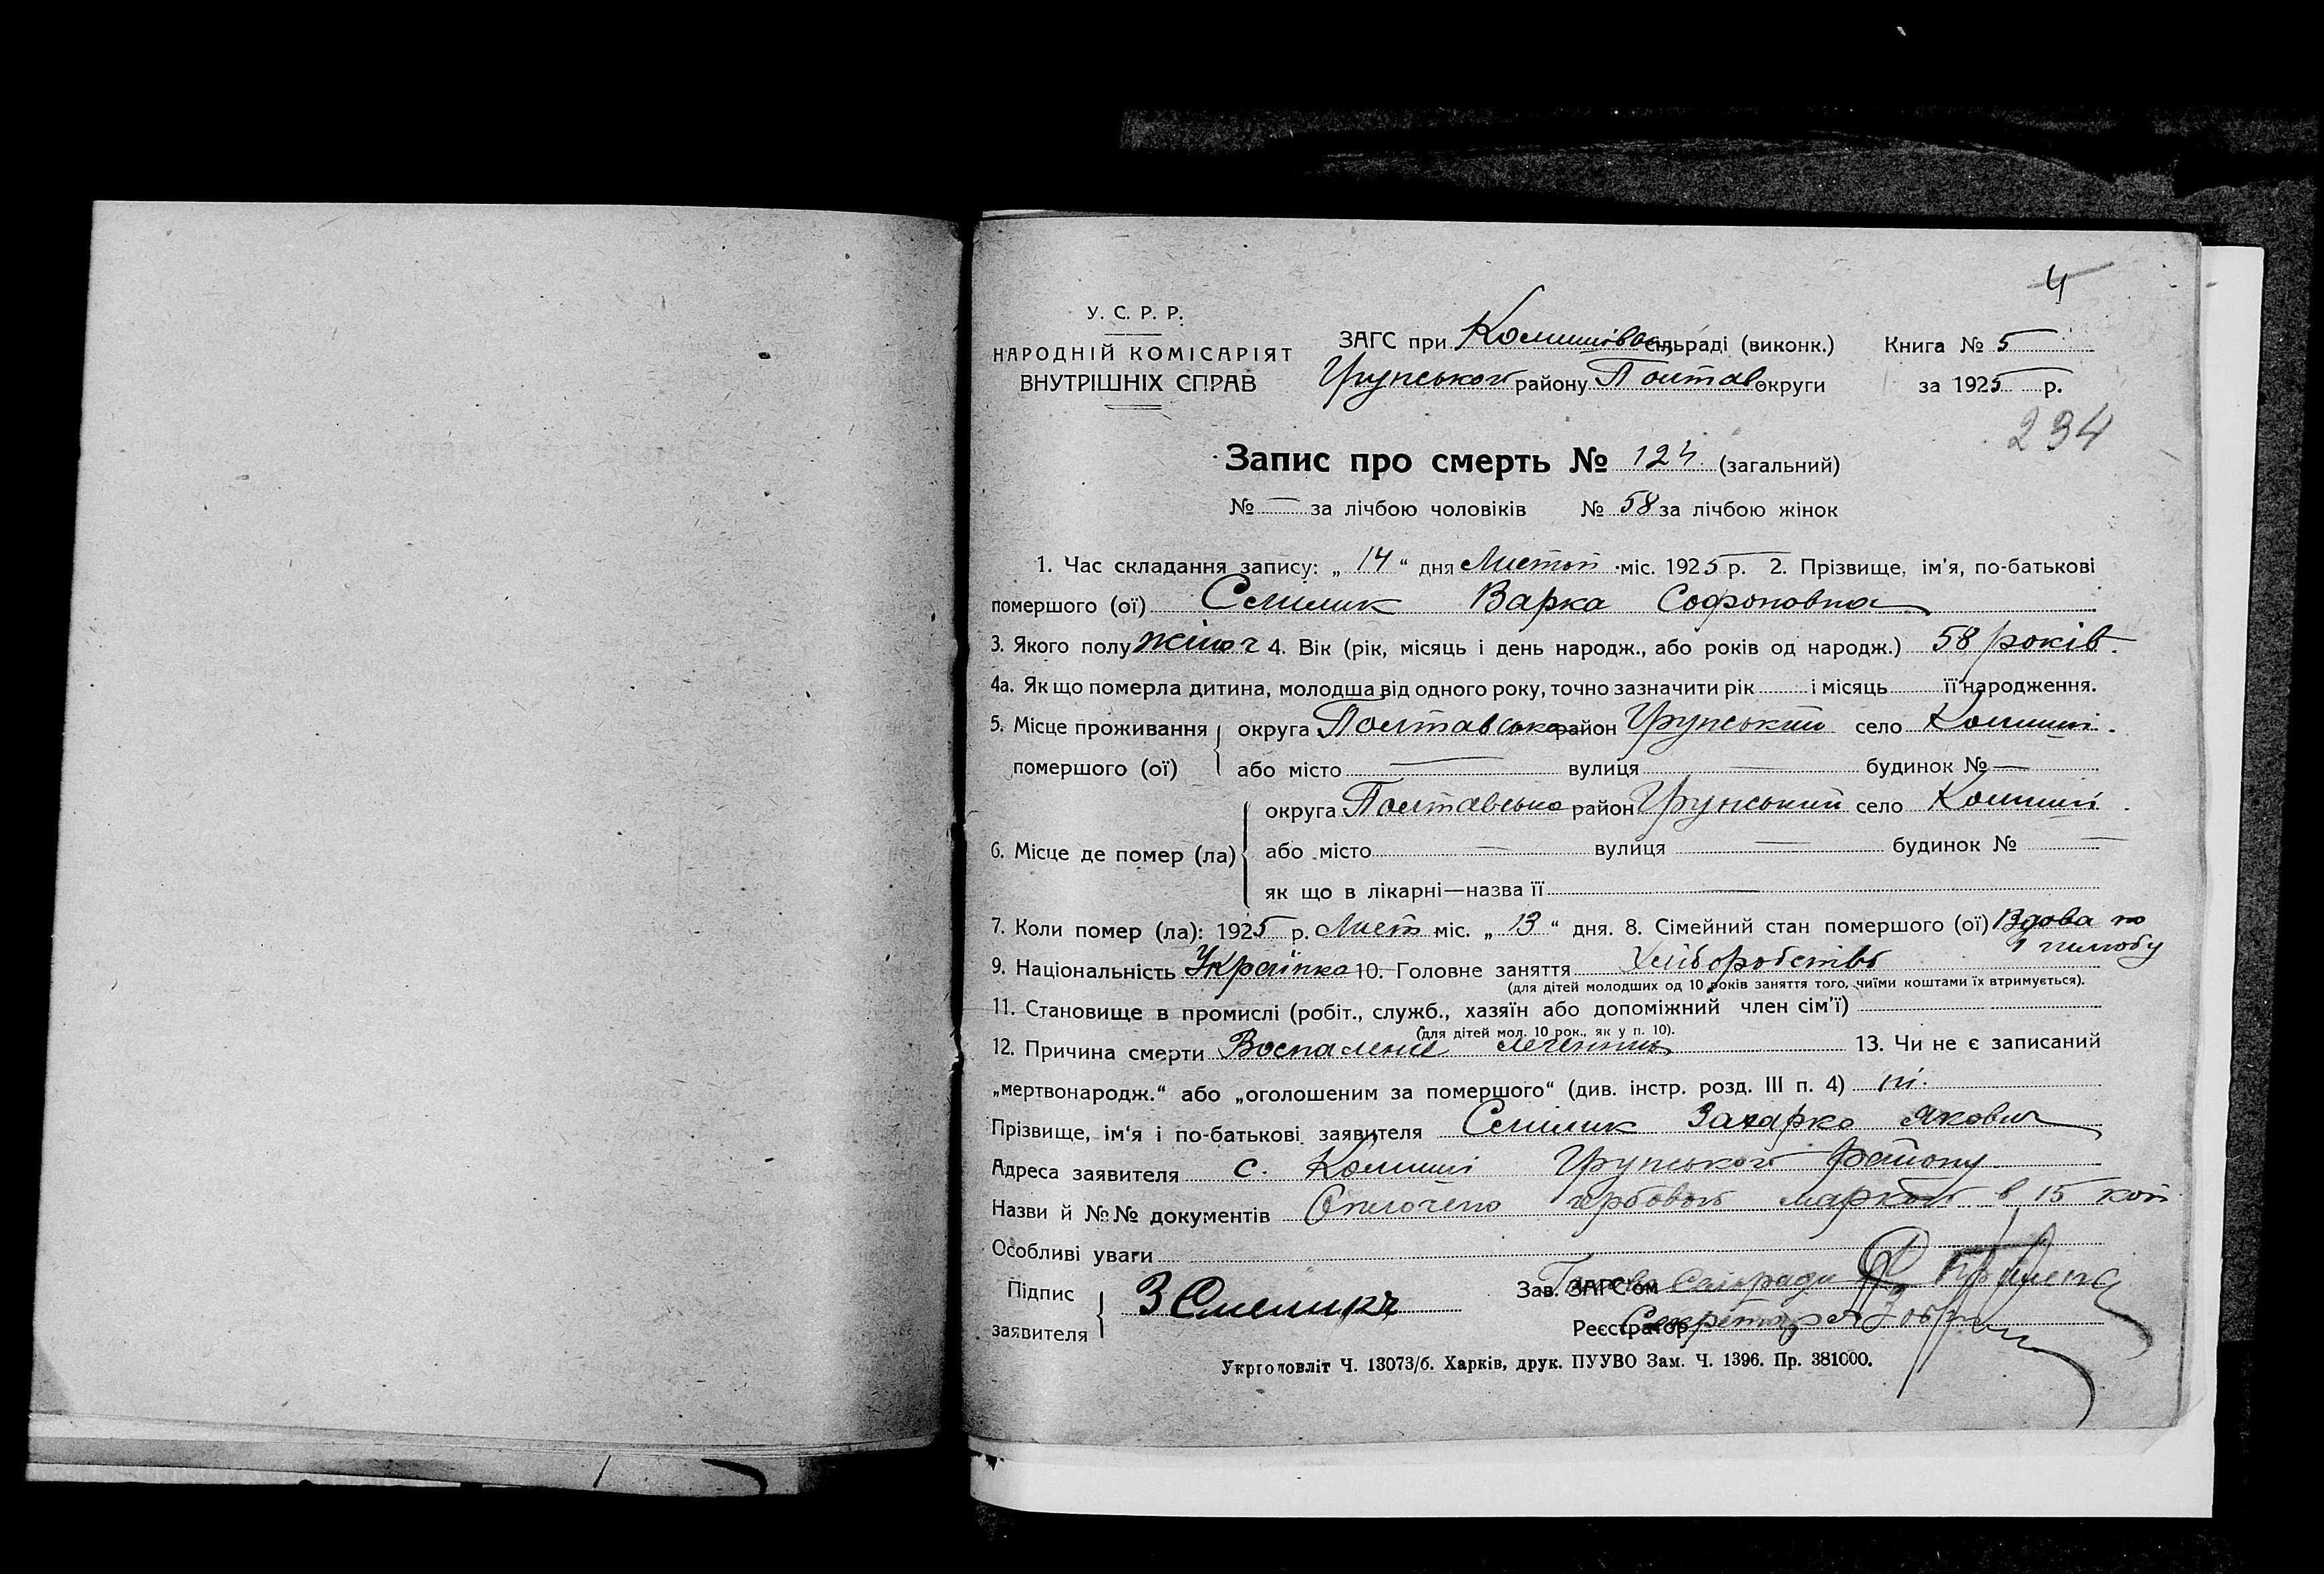 4
У. С. Р. Р.
НАРОДНІЙ КОМІСАРІЯТ
ВНУТРІШНІХ СПРАВ
ЗАГС при сільраді (виконк.)
Грунського району Полтав округи
Книга № 5
за 1925 р.
234
Запис про смерть № 124 (загальний)
№ — за лічбою чоловіків № 58 за лічбою жінок
1. Час складання запису: „ 14 “ дня Листоп міс. 1925 р. 2. Прізвище, ім'я, по-батькові
помершого (ої) Семилик Варка Софоновна
3. Якого полу жіноч 4. Вік (рік, місяць і день народж., або років од народж.) 58 років.
4а. Як що померла дитина, молодша від одного року, точно зазначити рік і місяць її народження.
5. Місце проживання округа Полтавська район Грунський село Комиші.
помершого (ої) або місто — вулиця — будинок № —
округа Полтавська район Грунський село Комиші
6. Місце де помер (ла) або місто — вулиця — будинок № —
як що в лікарні—назва її —
7. Коли помер (ла): 1925 р. Лист міс. „ 13 “ дня. 8. Сімейний стан помершого (ої) Вдова по
1 шлюбу
9. Національність Українка 10. Головне заняття Хліборобство
(для дітей молодших од 10 років заняття того, чиїми коштами їх втримується).
11. Становище в промислі (робіт., служб., хазяїн або допоміжний член сім'ї)
(для дітей мол. 10 рок., як у п. 10).
12. Причина смерти Воспаление 13. Чи не є записаний
„мертвонародж.“ або „оголошеним за помершого“ (див. інстр. розд. III п. 4) ні.
Прізвище, ім'я і по-батькові заявителя Семилик Захарко Якович
Адреса заявителя с. Комиші Грунського району
Назви й №№ документів Оплочено гербовою маркою в 15 коп
Особливі уваги
Підпис
заявителя
З Смеликъ
Зав. ЗАГС'ом Голова Сельради
Реєстратор Секретар
Укрголовліт Ч. 13073/б. Харків, друк. ПУУВО Зам. Ч. 1396. Пр. 381000.